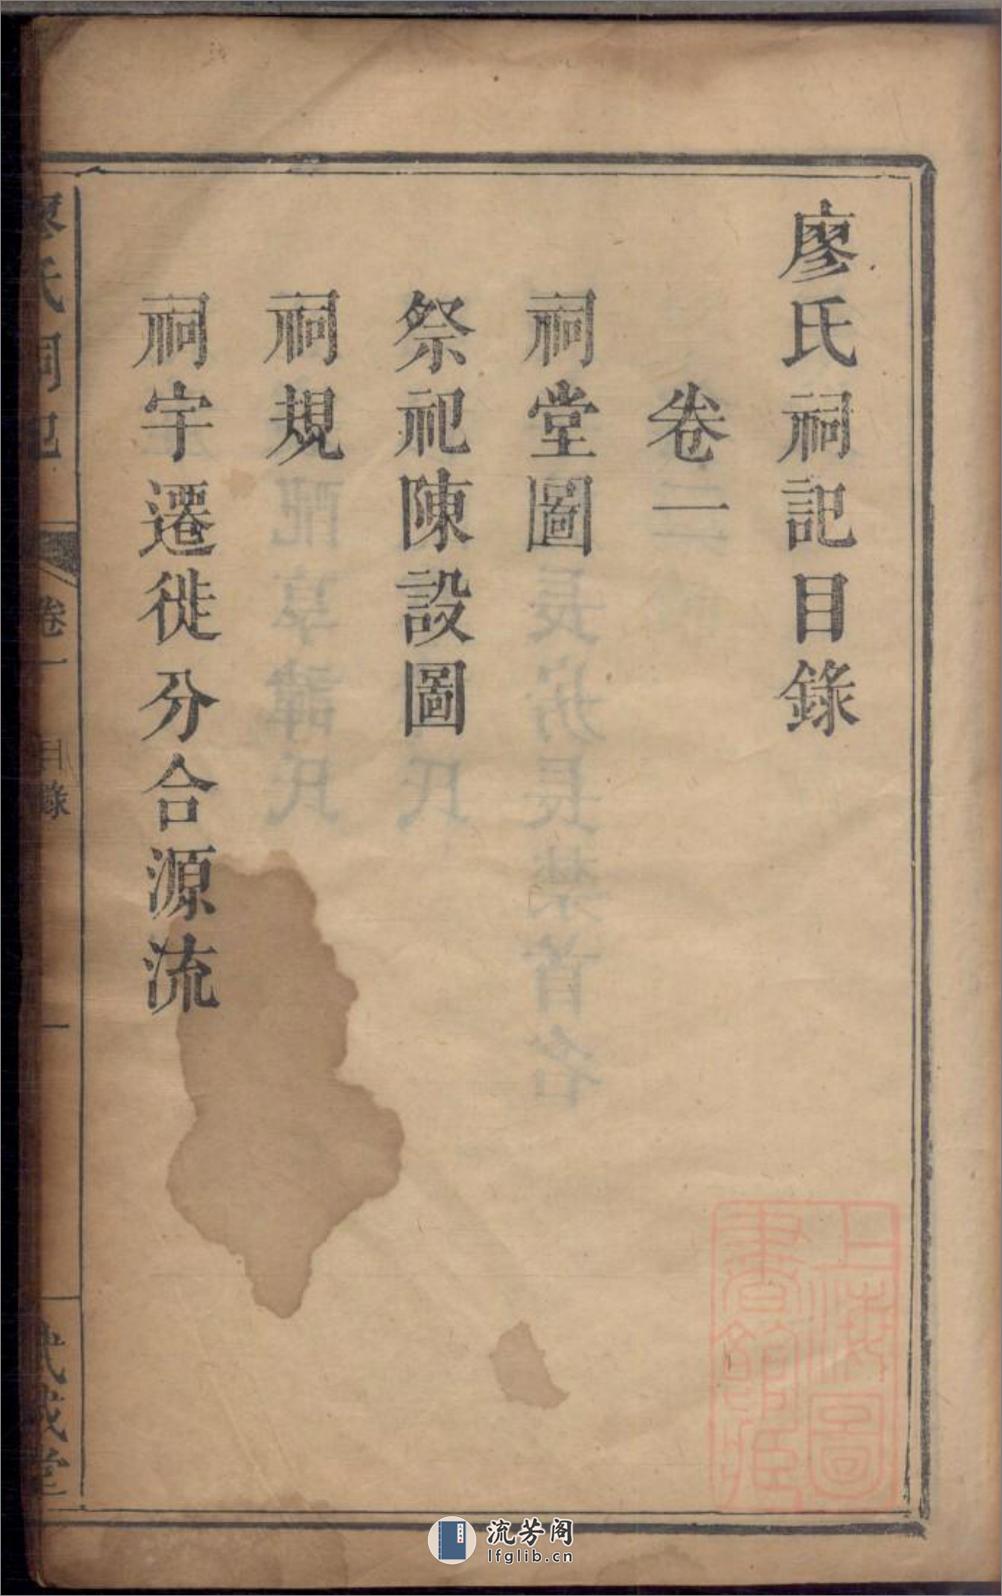 廖氏祠記目錄
卷一
祠堂圖
祭祀陳設圖
祠規
祠宇遷徙分合源流
廖氏祠記
卷一
目錄
一
武威堂
上海圖
書館藏
流芳阁
lfglib.cn